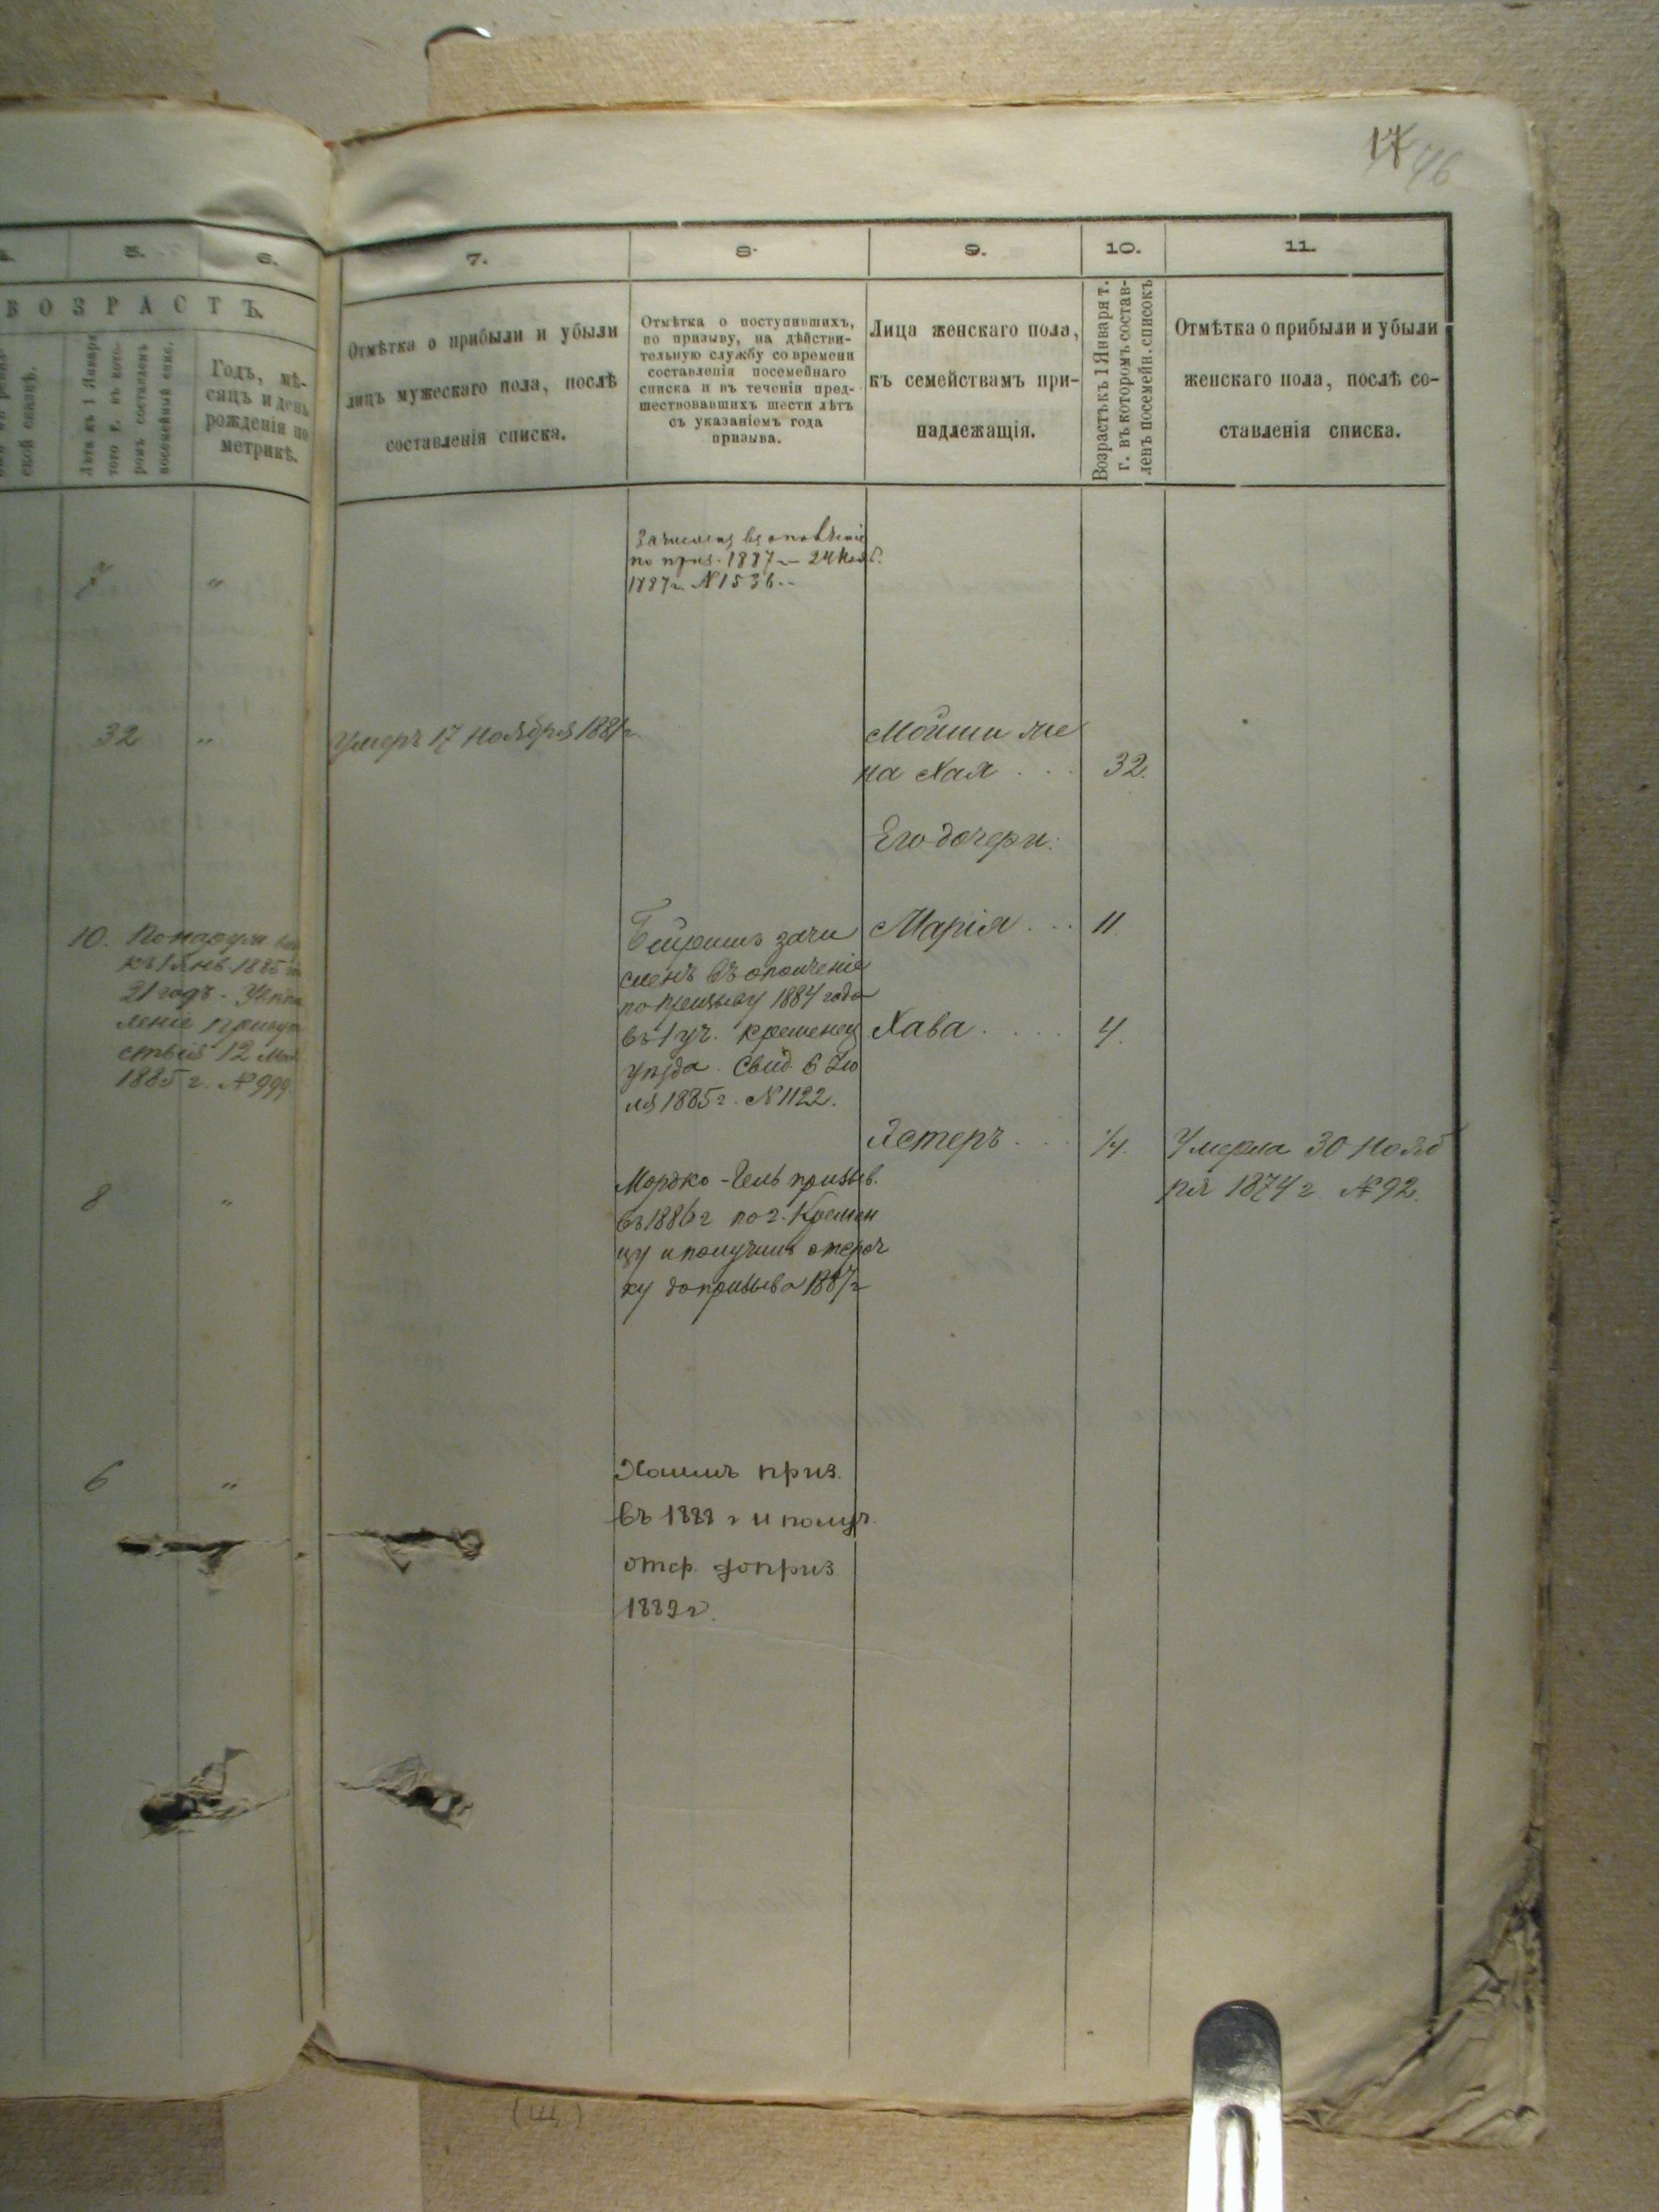 17 46
5.
6.
7.
8.
9.
10.
11.
ВОЗРАСТЪ.
Лѣта къ 1 Января
того г. въ кото-
ромъ составленъ
посемейный спис.
Годъ, мѣ-
сяцъ и день
рожденія по
метрикѣ.
Отмѣтка о прибыли и убыли
лицъ мужескаго пола, послѣ
составленія списка.
Отмѣтка о поступившихъ,
по призыву, на дѣйстви-
тельную службу со времени
составленія посемейнаго
списка и въ теченіи пред-
шествовавшихъ шести лѣтъ
съ указаніемъ года
призыва.
Лица женскаго пола,
къ семействамъ при-
надлежащія.
Возрастъ къ 1 Января т.
г. въ которомъ состав-
ленъ посемейн. списокъ
Отмѣтка о прибыли и убыли
женскаго пола, послѣ со-
ставленія списка.
Зачисленъ въ ополченіе
по приз. 1887 — 24 Нояб.
1887г. № 1536
"
32 "
Умеръ 17 Ноября 1881г.
Мошки же
на Хая . . . 32.
Его дочери:
10. По наружн. виду
къ 1 Янв. 1885 г.
21 годъ.
леніе присут
ствія 12 Мая
1885 г. № 999.
зачи
сленъ въ ополченіе
по призыву 1884 года
въ 1 уч. Кременец
уѣзда. Свид. 6 Ію
ля 1885 г. № 1122.
Марія . . . 11
Хава . . . . 4.
Эстеръ . . . 1/4.
Умерла 30 Нояб
ря 1874 г. № 92.
8 "
Мордко-Гель призыв.
въ 1886 г по г. Кремен
цу и получилъ отсроч
ку до призыва 1887 г
6 "
Хаимъ приз.
въ 1888 г и получ.
отср. до приз.
1889 г.
(Щ)